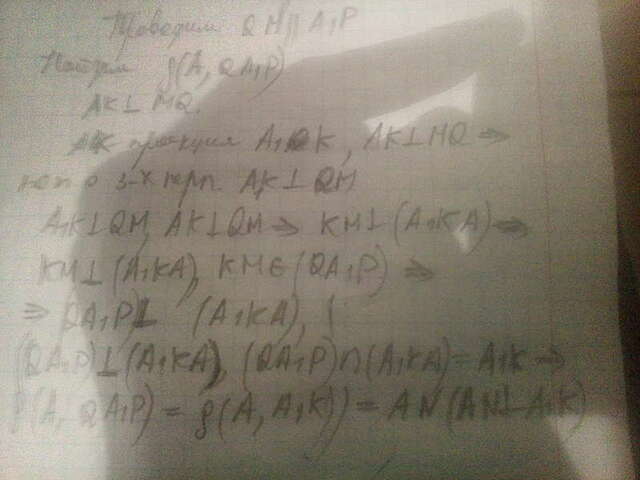 Проведем QM || A₁P
Найдем ρ(A, QA₁P)
AK⊥MQ.
AK проекция A₁K, AK⊥MQ ⇒
по т о 3-х перп. A₁K⊥QM
A₁K⊥QM, AK⊥QM ⇒ KM⊥(A₁KA) ⇒
KM⊥(A₁KA), KM∈(QA₁P) ⇒
⇒ QA₁P)⊥ (A₁KA), (
(QA₁P)⊥(A₁KA), (QA₁P)∩(A₁KA)=A₁K ⇒
ρ(A, QA₁P) = ρ(A, A₁K)) = AN(AN⊥A₁K)